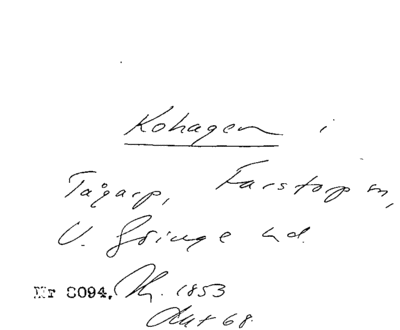 Kohagen i
Tågarp, Farstorp sn,
V. Göinge hd.
Nr 8094, 1853
Akt 68.